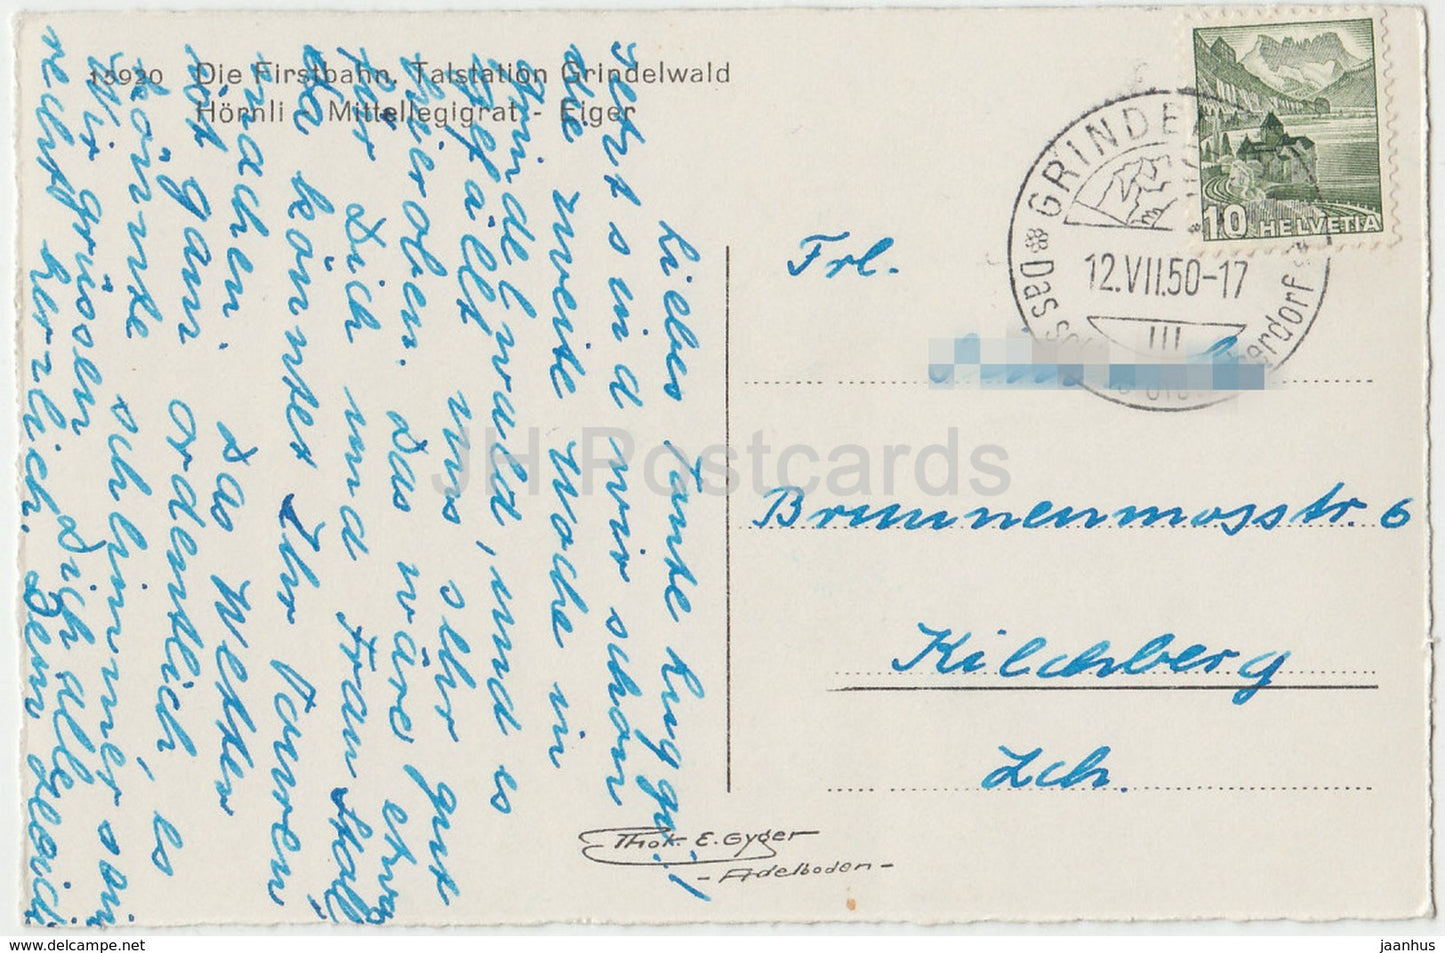 13920 Die Firstbahn, Talstation Grindelwald
Hörnli - Mittellegigrat - Eiger
Liebes Tante
Jetzt sind wir schon
die zweite Woche in
Grindelwald, und es
gefällt uns sehr gut
hier oben. Das wäre etwas
für Dich und Fräu
da könntet Ihr Touren
machen. Das Wetter
ist ganz ordentlich, es
könnte schlimmer sein
Wir grüssen Dich alle
recht herzlich. Dein
GRINDE
12.VII.50-17
Das sc
erdorf
III
10 HELVETIA
Frl.
Brunnenmosstr. 6
Kilchberg
Zch.
Phot. E. Gyger
- Adelboden -
JH Postcards
hippostcard.com
jaanhus